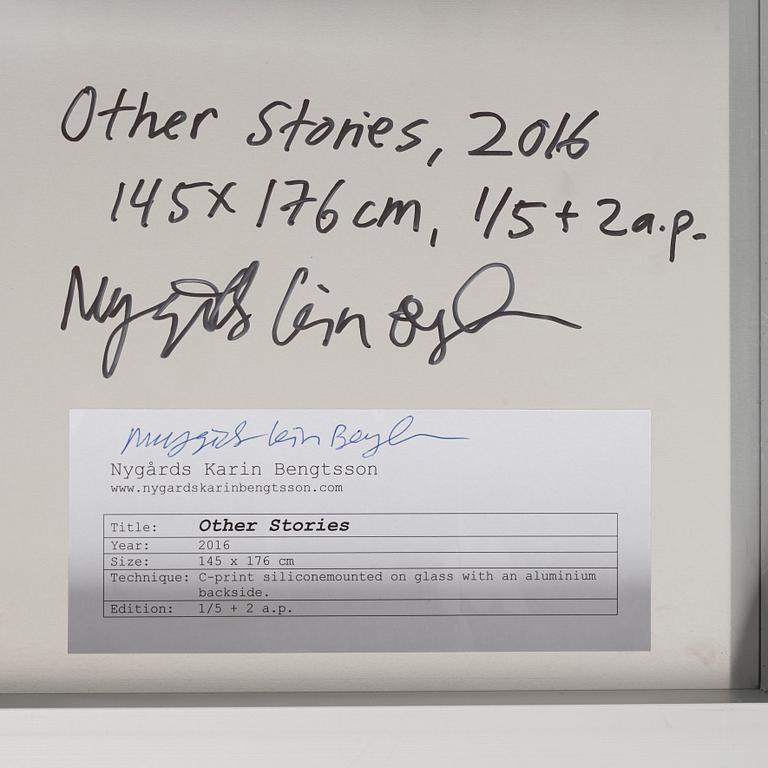 Other Stories, 2016
145 x 176 cm, 1/5 + 2 a.p.
Nygårds Karin Bengtsson
Nygårds Karin Bengtsson
Nygårds Karin Bengtsson
www.nygardskarinbengtsson.com
Title: Other Stories
Year: 2016
Size: 145 x 176 cm
Technique: C-print siliconemounted on glass with an aluminium
backside.
Edition: 1/5 + 2 a.p.